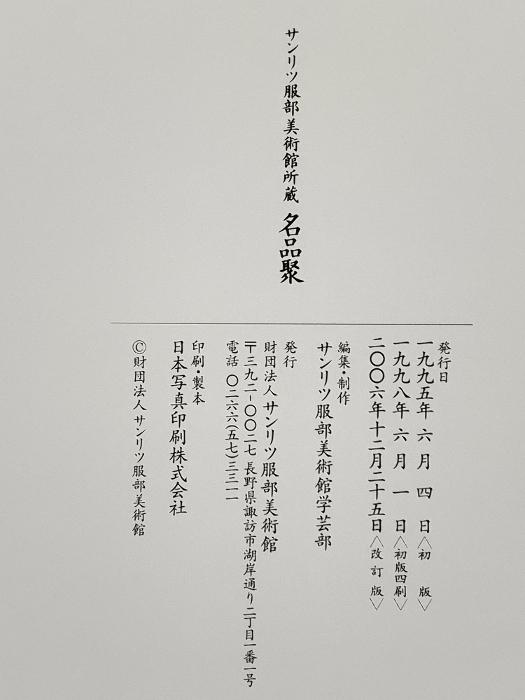 サンリツ服部美術館所蔵 名品聚
発行日
一九九五年 六月 四 日〈初 版〉
一九九八年 六月 一 日〈初版四刷〉
二〇〇六年十二月二十五日〈改訂版〉
編集・制作
サンリツ服部美術館学芸部
発行
財団法人 サンリツ服部美術館
〒三九二-〇〇二七 長野県諏訪市湖岸通り二丁目一番一号
電話 〇二六六(五七)三三一一
印刷・製本
日本写真印刷株式会社
Ⓒ財団法人 サンリツ服部美術館